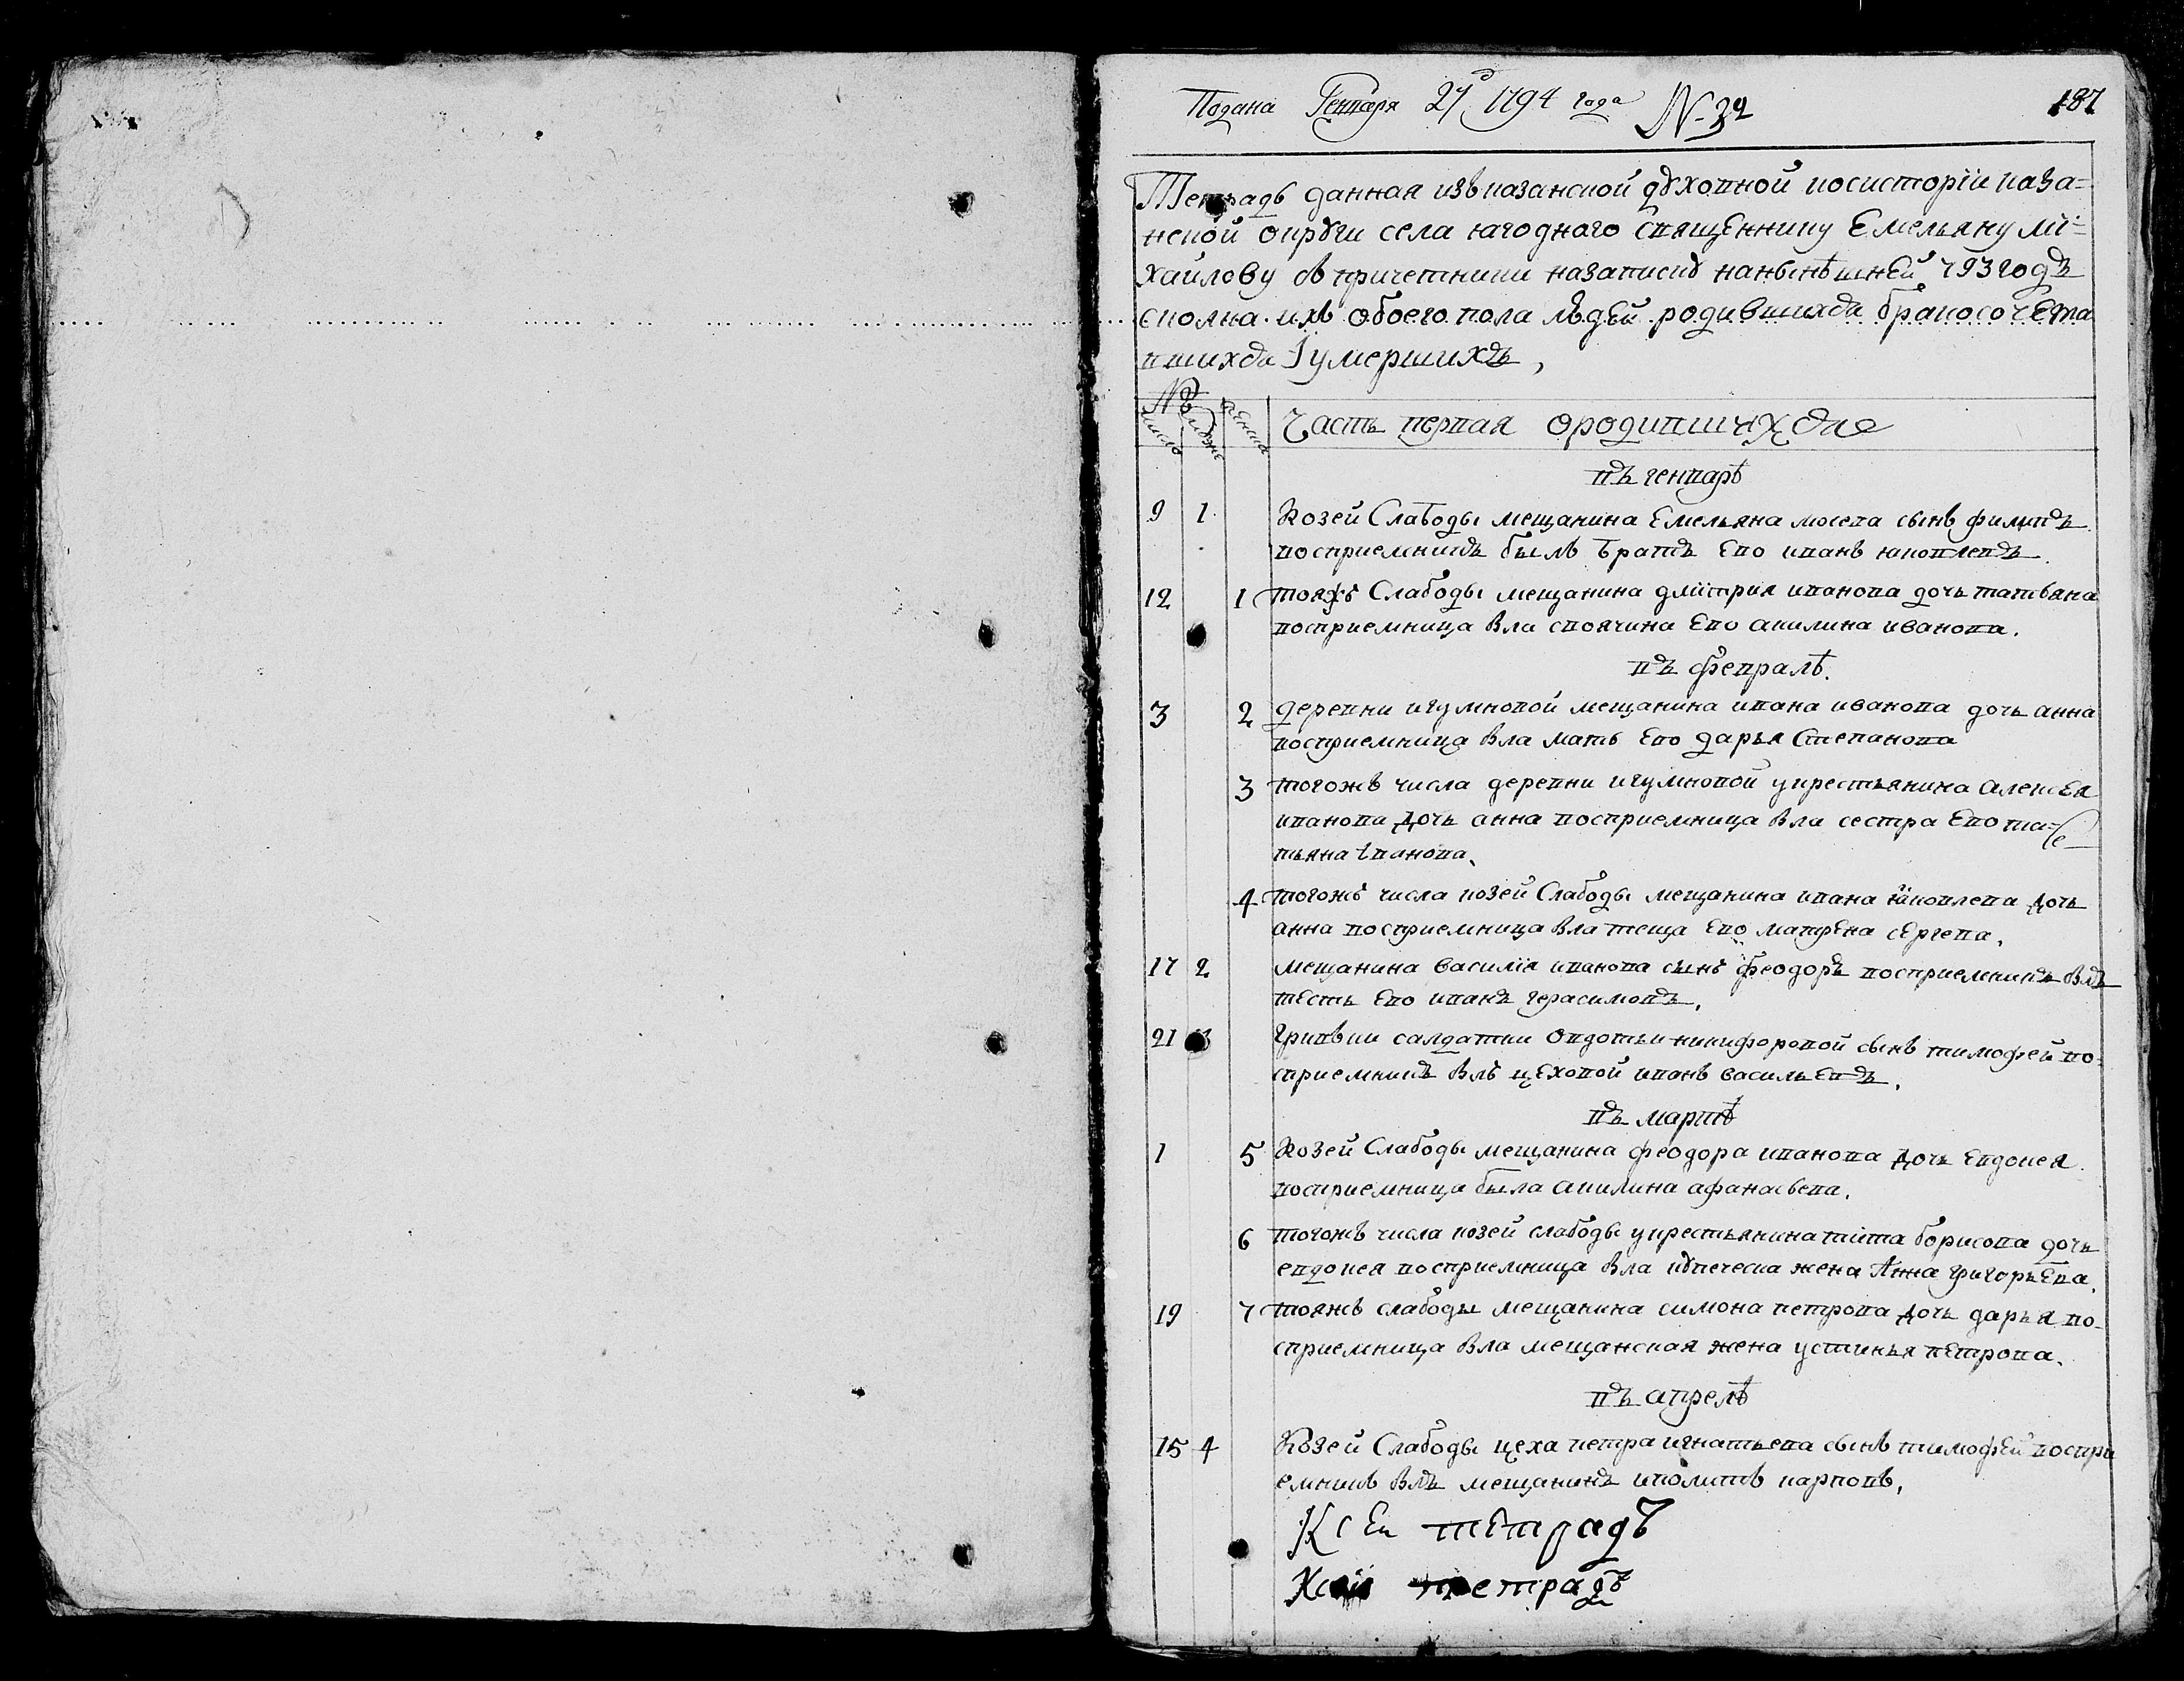 Подана Генваря 27д 1794 года № 32
187
Тетрадь данная изъ казанской духовной косисторіи каза=
нской округи села ягодного священнику Емельяну ми=
хаилову съ причетники на записку на нынѣшней 793 годъ
сколка ихъ обоего пола людей родившихся бракосочета
вшихся Iумершихъ,
№
число
женска
Часть первая о родившихся
въ генварѣ
9 1 Козей Слабоды мещанина Емельяна мосева сынъ филипъ
восприемникъ былъ братъ Ево иванъ яковлевъ
12 1 тояжъ Слабоды мещанина дмитрия иванова дочь татьяна
восприемница бла своячина Ево акилина иванова.
въ февралѣ.
3 2 деревни игумновой мещанина ивана иванова дочь анна
восприемница бла мать Ево дарья Степанова
3 тогожъ числа деревни игумновой у крестьянина алексея
иванова дочь анна восприемница бла сестра Ево та=
тьяна iванова,
4 тогожъ числа козей Слабоды мещанина ивана яковлева дочь
анна восприемница бла теща Ево матрена сергева,
17 2 мещанина василія иванова сынъ феодоръ восприемникъ блъ
тесть Ево иванъ герасимовъ,
21 3 Гривки салдатки овдотьи никифоровой сынъ тимофей во=
сприемникъ блъ цеховой иванъ васильевъ,
въ мартѣ
1 5 Козей Слабоды мещанина феодора иванова дочь Евдокея
восприемница была акилина афанасьева,
6 тогожъ числа козей слабоды у крестьянина тита борисова дочь
евдокея восприемница бла купческа жена Анна григорьева,
19 7 тояжъ слабоды мещанина симона петрова дочь дарья во=
сприемница бла мещанская жена устинья петрова,
въ апрелѣ
15 4 Козей Слабоды цеха петра игнатьева сынъ тимофей воспри
емникъ блъ мещанинъ иполитъ карповъ,
К сеи тетрадъ
Ксеи тетрадъ